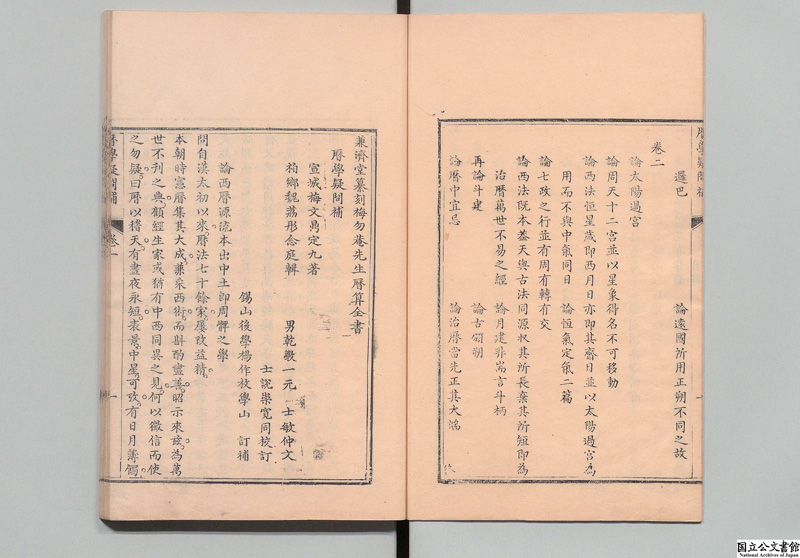 暦學疑問補
邏巴　論遠國所用正朔不同之故
卷二
論太陽過宮
論周天十二宮並以星象得名不可移動
論西法恒星歲即西月日亦即其齋日並以太陽過宮為
用而不與中氣同日　論恒氣定氣二篇
論七政之行並有周有轉有交
論西法既本葢天與古法同源収其所長棄其所短即為
治暦萬世不易之經　論月建非耑言斗柄
再論斗建　論古頒朔
論暦中宜忌　論治暦當先正其大
兼濟堂纂刻梅勿菴先生暦算全書
暦學疑問補
宣城梅文鼎定九著
柏鄉魏荔彤念庭輯　男乾斆一元　士敏仲文
士説崇寬同校訂
錫山後學楊作枚學山　訂補
論西暦源流本出中土即周髀之學
問自漢太初以來暦法七十餘家屢攷益精
本朝時憲暦集其大成兼采西術而斟酌盡善昭示來兹為萬
世不刋之典顧經生家或猶有中西同異之見何以徵信而使
之勿疑曰暦以稽天有晝夜永短表景中星可攷有日月薄蝕
暦學疑問補　卷一　一
国立公文書館
National Archives of Japan